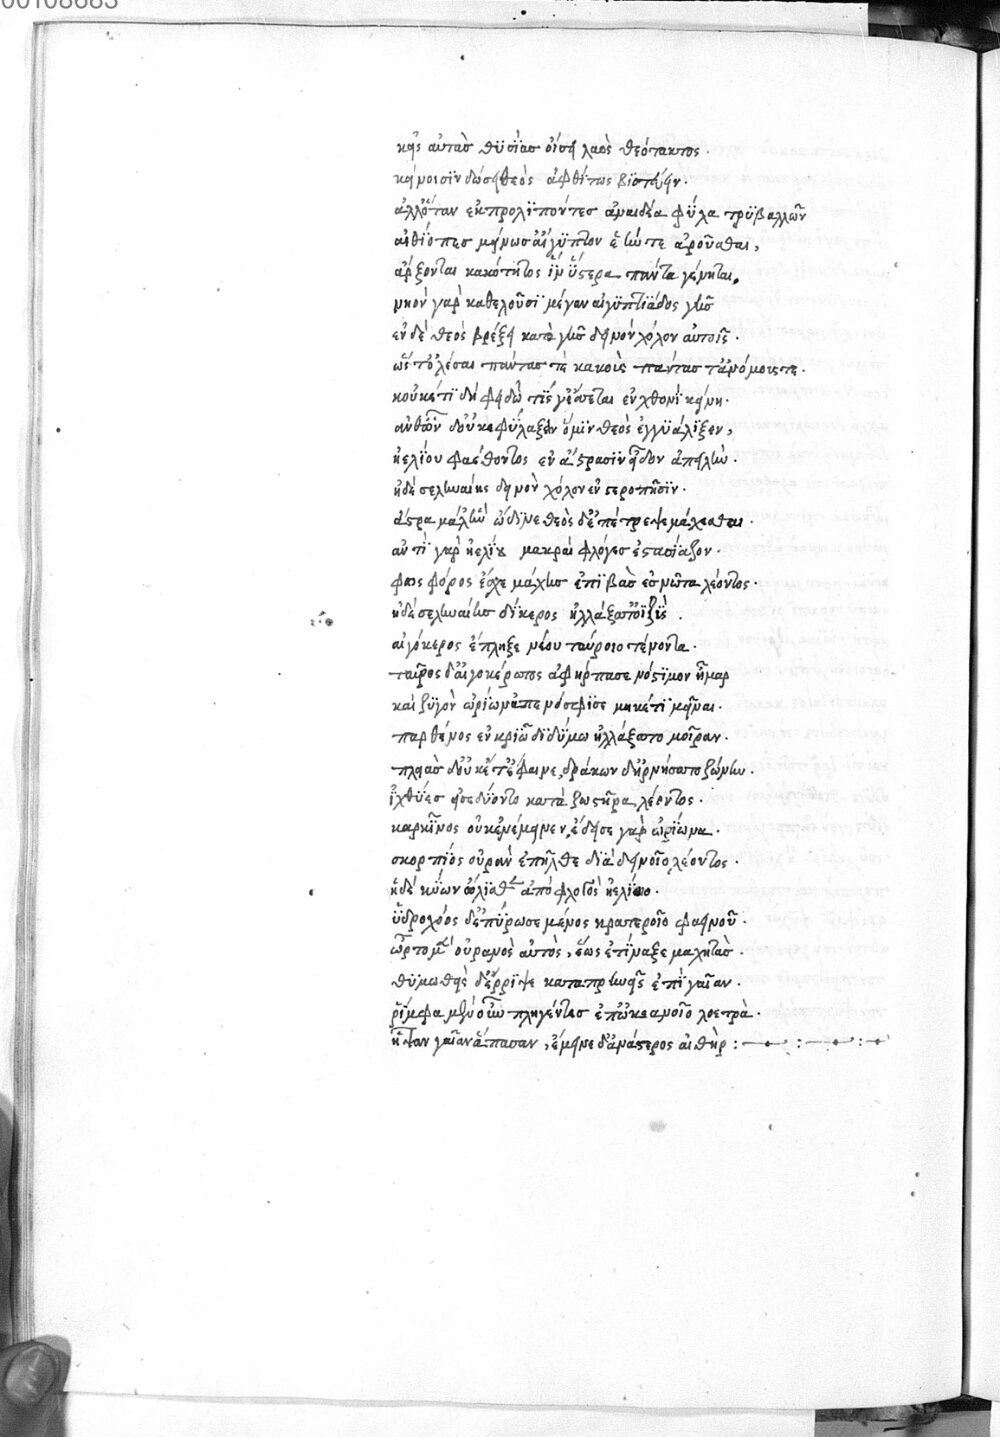 00108683
κεἰς αὐτὰσ θϋσίασ οἴσει λαὸς θεότακτος·
κείνοισϊν δώσει θεὸς ἀφθίτως βϊοτεύειν·
ἀλλ' ὅταν ἐκπρολϊπόντεσ ἀναιδέα φῦλα τρϋβαλλῶν
αἰθίοπεσ μείνωσ' αἴγϋπτον ἑήν τε ἀροῦσθαι,
ἄρξονται κακότητος ἵν' ὕστερα πάντα γένηται,
νηὸν γὰρ καθελοῦσϊ μέγαν αἰγϋπτϊάδος γῆσ
ἐν δὲ θεὸς βρέξει κατὰ γῆσ δεινὸν χόλον αὐτοῖς·
ὥστ' ὀλέσαι πάντασ τὲ κακοὺς πάντασ τ' ἀνόμους τε·
κοὐκέτϊ δὴ φειδώ τϊς γενήσεται ἐν χθονὶ κείνη·
ἀνθ' ὧν δ' οὐκ ἐφΰλαξεν ὅ μϊν θεὸς ἐγγϋάλϊξεν,
ἠελίου φαέθοντος ἐν ἄστρασϊν εἶδον ἀπειλὴν·
ἠδὲ σεληναίης δεινὸν χόλον ἐν στεροπῆσϊν·
ἄστρα μάχην ὤδϊνε θεὸς δ' ἐπέτρεψε μάχεσθαι·
ἀντὶ γὰρ ἠελίου μακραὶ φλόγεσ ἐστασίαζον·
φωσφόρος ἔσχε μάχην ἐπϊβὰσ ἐσ νῶτα λέοντος·
ἠδὲ σεληναίησ δίκερος ἠλλάξατο
αἰγόκερος ἔπληξε νέου ταύροιο τένοντα·
ταῦρος δ' αἰγοκέρωτος ἀφήρπασε νόστϊμον ἦμαρ
καὶ ζϋγὸν ὠρίων ἀπενόσφϊσε μηκέτϊ μεῖναι·
παρθένος ἐν κρϊῶ δϊδύμων ἠλλάξατο μοῖραν·
πλειὰσ δ' οὐκέτ' ἔφαινε, δράκων δ' ἠρνήσατο ζώνην·
ἰχθύεσ εἰσεδύοντο κατὰ ζωστῆρα λέοντος·
καρκῖνος οὐκ ἐνέμεινεν, ἔδεισε γὰρ ὠρίωνα·
σκορπίος οὐρὰν ἐπῆλθε δϊὰ δεινοῖο λέοντος·
ἠδὲ κύων ὀλίσθεν ἀπὸ φλογὸς ἠελίοιο·
ὑδροχόος δ' ἐπύρωσε μένος κρατεροῖο φαεινοῦ·
ὦρτο μὲν οὐρανὸς αὐτὸς, ἕως ἐτίναξε μαχητὰσ·
θϋμωθεὶς δ' ἔρρϊψε καταπρηνεῖς ἐπὶ γαῖαν·
ῥίμφα μὲν οὖν πληγέντεσ ἐπ' ὠκεανοῖο λοετρὰ·
ἧψαν γαῖαν ἅπασαν, ἔμεινε δ' ἀνάστερος αἰθήρ :